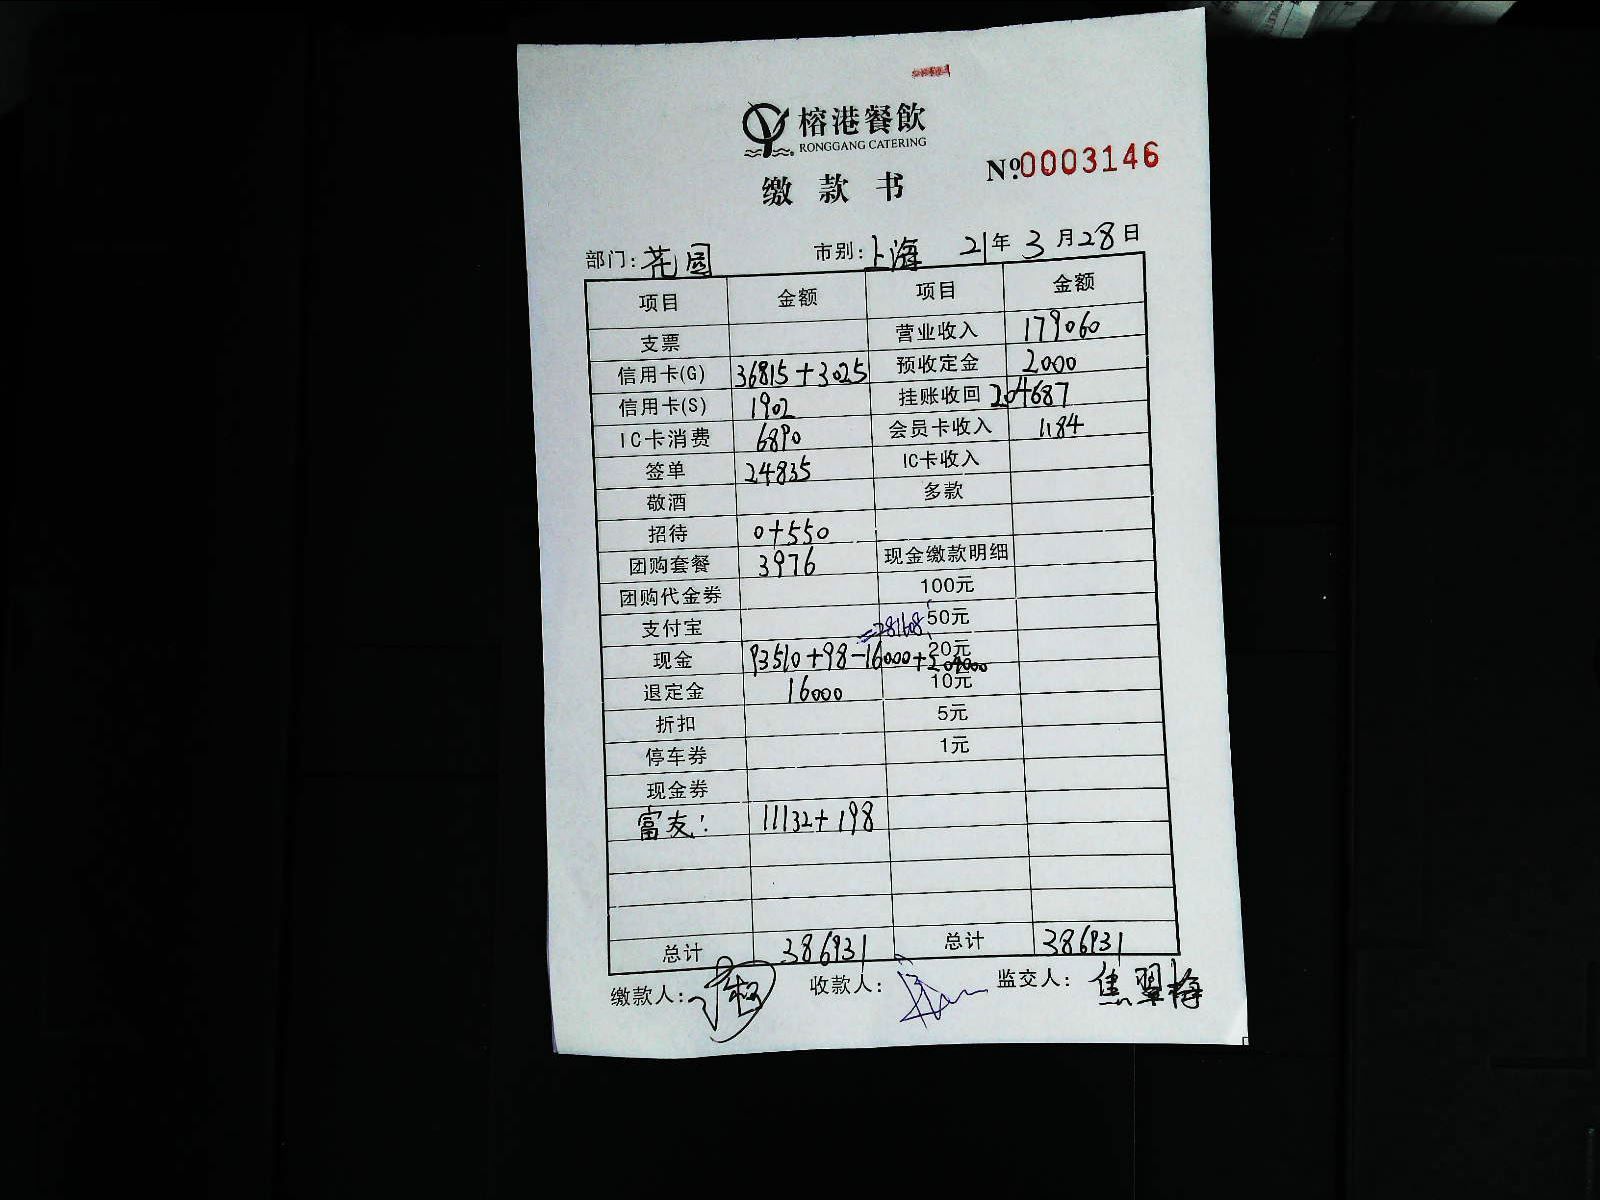 榕港餐飲
RONGGANG CATERING
缴款书
№0003146
部门：花园 市别：上海 21年3月28日
项目 金额 项目 金额
支票 营业收入 179060
信用卡(G) 36815+3025 预收定金 2000
信用卡(S) 1902 挂账收回 204687
IC卡消费 6890 会员卡收入 1184
签单 24835 IC卡收入
敬酒 多款
招待 0+550
团购套餐 3976 现金缴款明细
团购代金券 100元
支付宝 =281608 50元
现金 93510+98-16000+204000 20元
退定金 16000 10元
折扣 5元
停车券 1元
现金券
富友： 11132+198
总计 386931 总计 386931
缴款人： 收款人： 监交人：焦翠梅